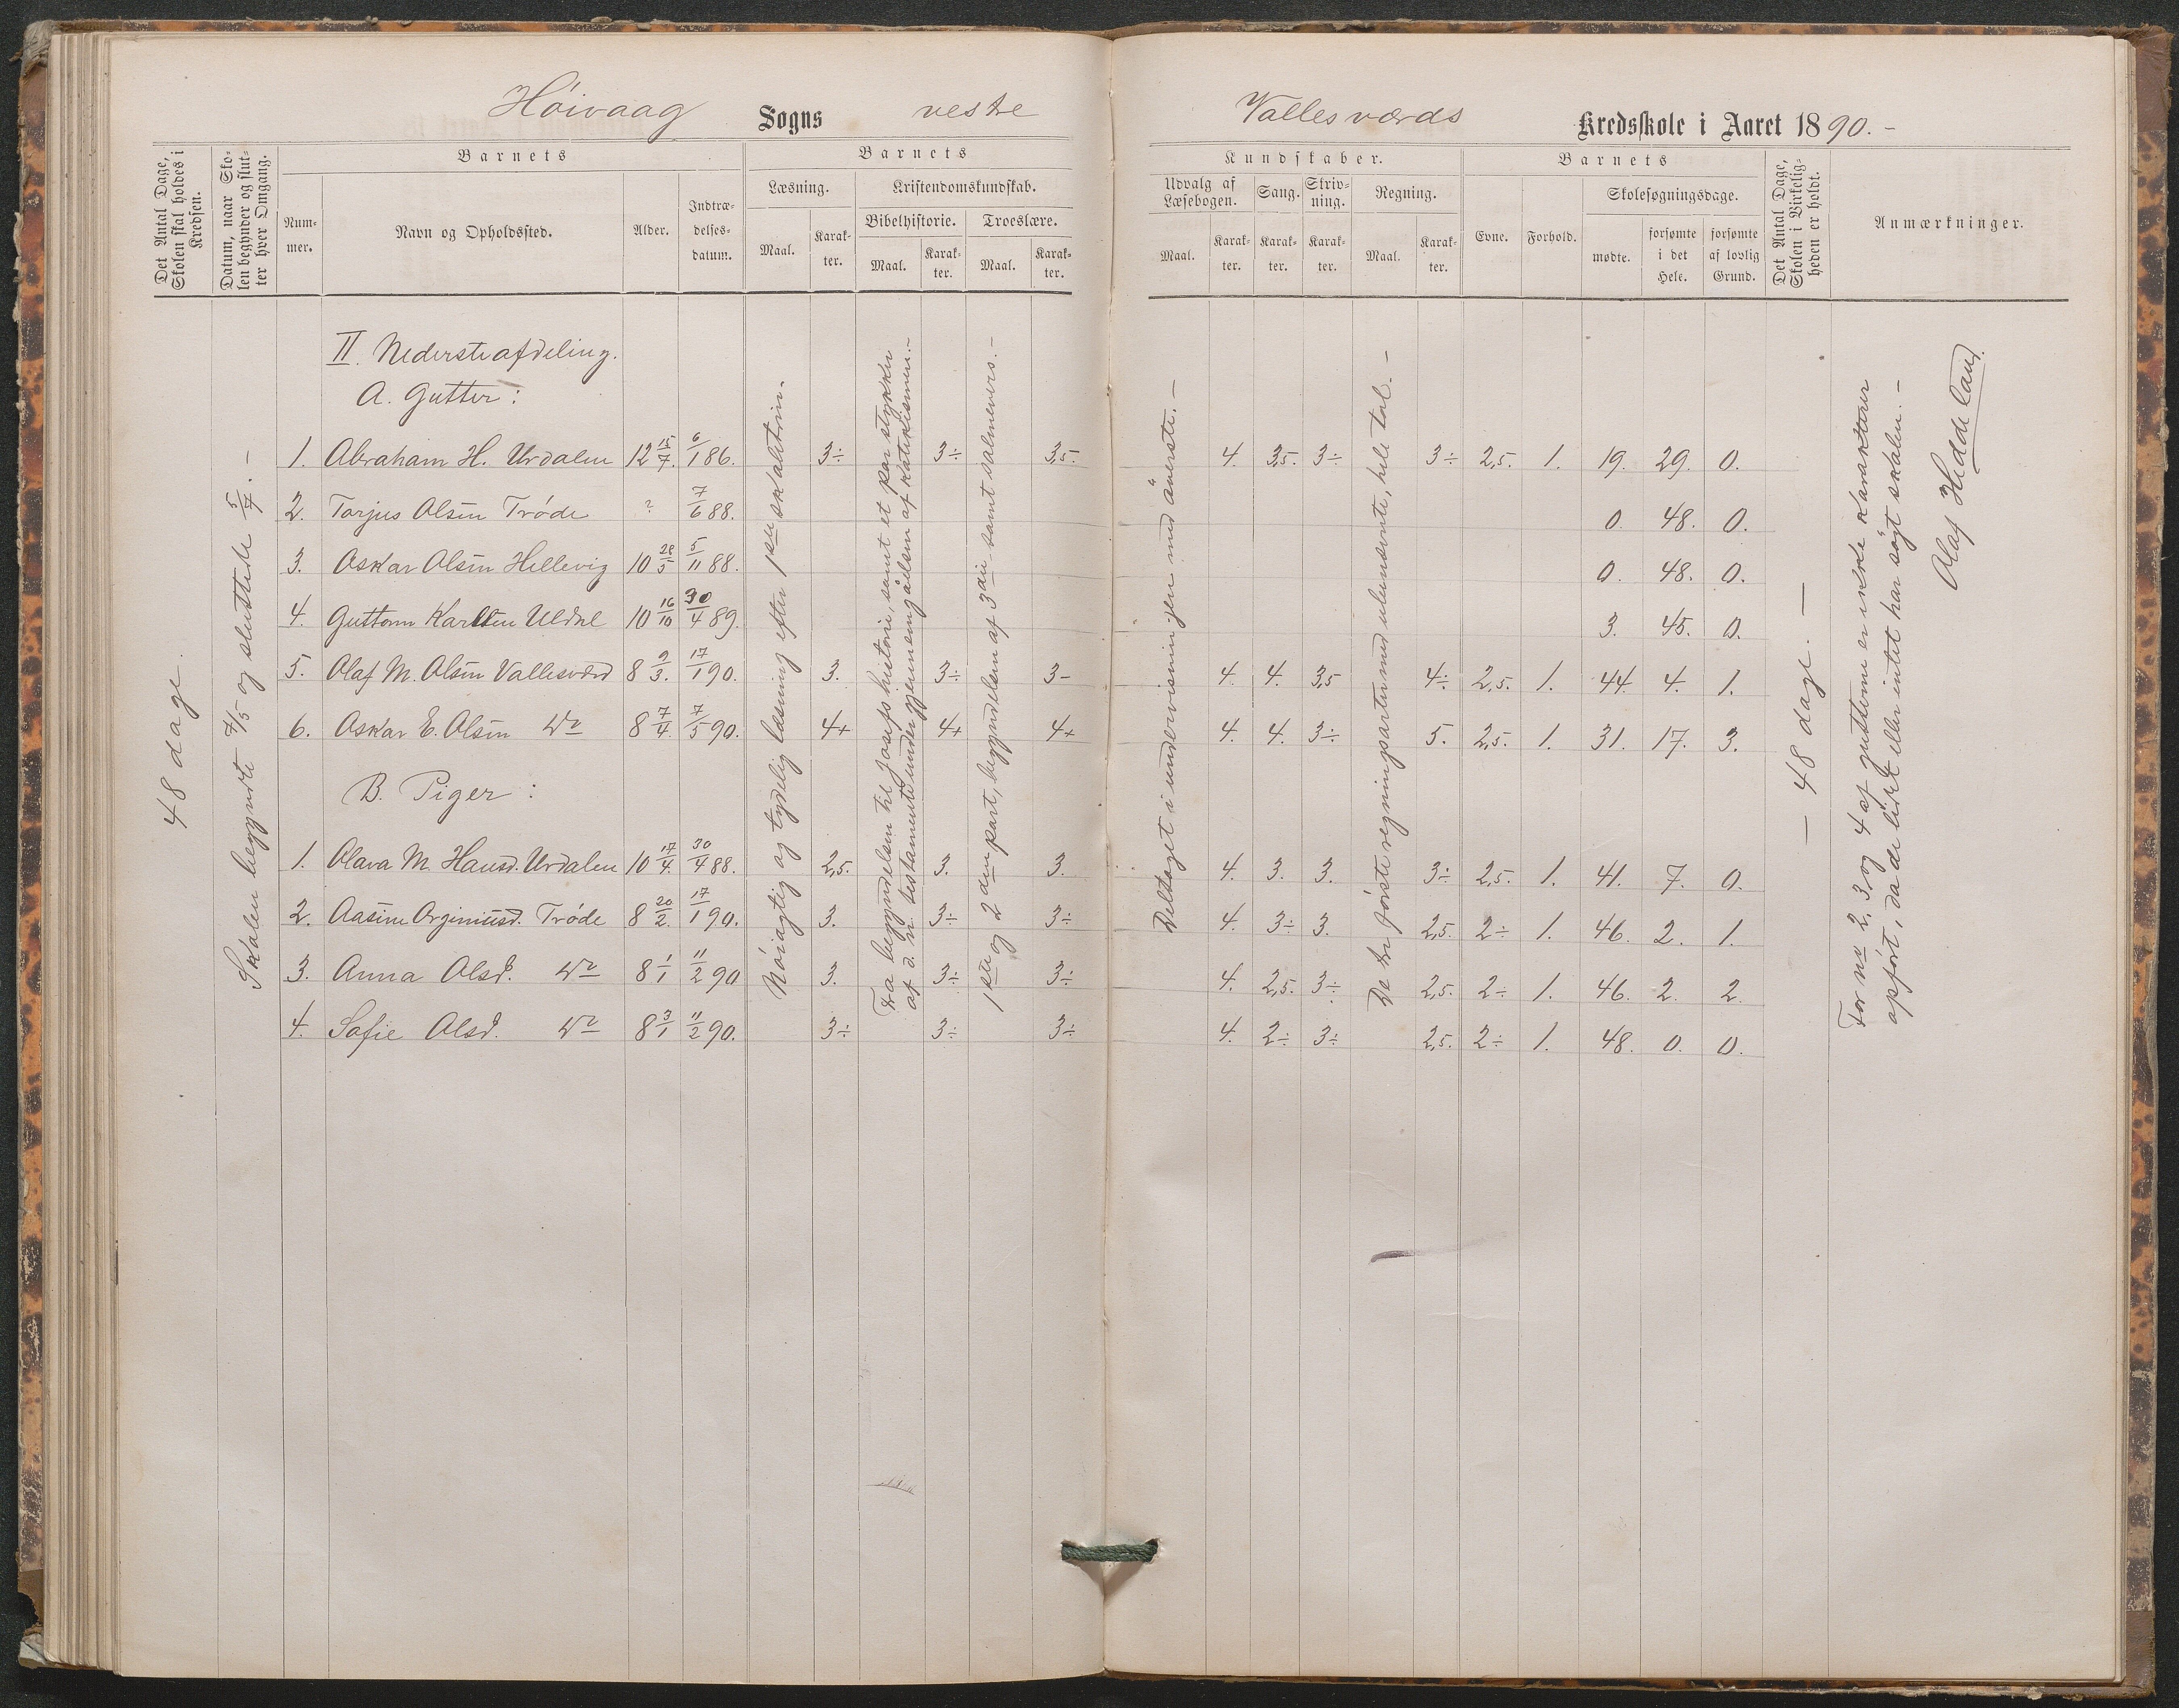 Höivaag Sogns vestre
Det Antal Dage, Skolen skal holdes i Kredsen.
Datum, naar Skolen begynder og slutter hver Omgang.
Barnets
Nummer.
Navn og Opholdssted.
Alder.
Indtrædelsesdatum.
Barnets
Læsning.
Maal.
Karakter.
Kristendomskundskab.
Bibelhistorie.
Maal.
Karakter.
Troeslære.
Maal.
Karakter.
48 dage.
Skolen begyndte 4/5 og sluttede 5/7. —
II. Nedersteafdeling.
A. Gutter:
1. Abraham H. Urdalen 12 15/7. 6/1 86. 3÷ 3÷ 3,5.
2. Torjus Olsen Tröde ? 7/6 88.
3. Oskar Olsen Hellevig 10 28/5 5/11 88.
4. Guttorm Karlsen Uldal 10 16/10 30/4 89.
5. Olaf M. Olsen Vallesværd 8 9/3. 17/1 90. 3. 3÷ 3-
6. Oskar E. Olsen Do 8 7/4. 7/5 90. 4+ 4+ 4+
B. Piger:
1. Olava M. Hansd. Urdalen 10 17/4. 30/4 88. 2,5. 3. 3.
2. Aasine Orginiusd. Tröde 8 20/2. 17/1 90. 3. 3÷ 3÷
3. Anna Olsd. Do 8 1/1 11/2 90 3. 3÷ 3÷
4. Sofie Olsd. Do 8 3/1 11/2 90. 3÷ 3÷ 3÷
Nöiagtig og tydelig læsning efter 1ste skoletrin.
Fra begyndelsen til Josefs historie, samt et par stykker
af d. n. testamente under gjennemgåelsen af katekismen.-
1ste og 2den part, begyndelsen af 3die samt salmevers. -
Vallesværds Kredsskole i Aaret 1890. -
Kundskaber.
Udvalg af Læsebogen.
Maal.
Karakter.
Sang.
Karakter.
Skrivning.
Karakter.
Regning.
Maal.
Karakter.
Barnets
Evne.
Forhold.
Skolesøgningsdage.
mødte.
forsømte i det Hele.
forsømte af lovlig Grund.
Det Antal Dage, Skolen i Virkeligheden er holdt.
Anmærkninger.
Deltaget i undervisningen med øverste. —
De tre första regningsarter med ubenævnte, hele tal. -
4. 3,5. 3÷ 3÷ 2,5. 1. 19. 29. 0.
0. 48. 0.
0. 48. 0.
3. 45. 0.
4. 4. 3,5 4÷ 2,5. 1. 44. 4. 1.
4. 4. 3÷ 5. 2,5. 1. 31. 17. 3.
4. 3. 3. 3÷ 2,5. 1. 41. 7. 0.
4. 3÷ 3. 2,5. 2÷ 1. 46. 2. 1.
4. 2,5. 3÷ 2,5. 2÷ 1. 46. 2. 2.
4. 2÷ 3÷ 2,5. 2÷ 1. 48. 0. 0.
— 48 dage. —
For no 2, 3, og 4 af gutterne er inkke karakterer
opfört, da de lidet eller intet har sögt skolen. -
Olaf Heddeland.